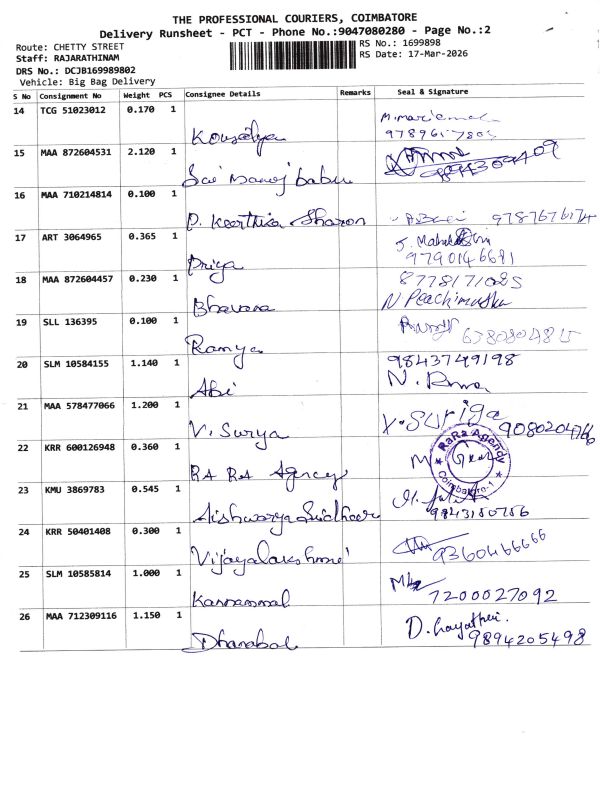 THE PROFESSIONAL COURIERS, COIMBATORE
Delivery Runsheet - PCT - Phone No.:9047080280 - Page No.:2
Route: CHETTY STREET
RS No.: 1699898
Staff: RAJARATHINAM
RS Date: 17-Mar-2026
DRS No.: DCJB169989802
Vehicle: Big Bag Delivery
S No Consignment No Weight PCS Consignee Details Remarks Seal & Signature
14 TCG 51023012 0.170 1
Kousalya
15 MAA 872604531 2.120 1
Sai Manoj babu
16 MAA 710214814 0.100 1
P. Keerthika Sharon 9787676174
17 ART 3064965 0.365 1
Priya 9790146681
18 MAA 872604457 0.230 1
Bhavana N Peachimuthu
19 SLL 136395 0.100 1
Ramya
20 SLM 10584155 1.140 1 9843749198
Abi
21 MAA 578477066 1.200 1
V. Surya
22 KRR 600126948 0.360 1 RaRa Agency
RA RA Agency Coimbatore-1
23 KMU 3869783 0.545 1
Aishwarya Sudheer
24 KRR 50401408 0.300 1
Vijayalakshmi 9360466666
25 SLM 10585814 1.000 1
Kannammal 7200027092
26 MAA 712309116 1.150 1
Dhanabal 9894205498